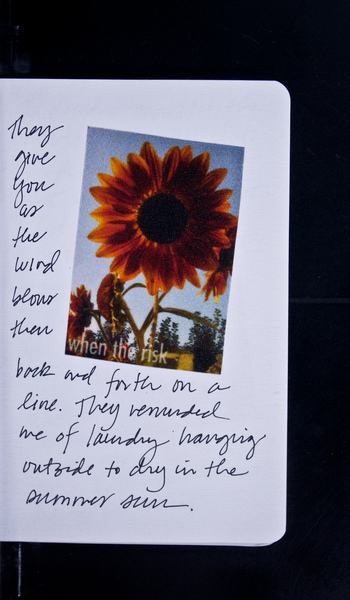 they
give
you
as
the
wind
blows
them
when the risk
back and forth on a
line. They reminded
me of laundry hanging
outside to dry in the
summer sun.